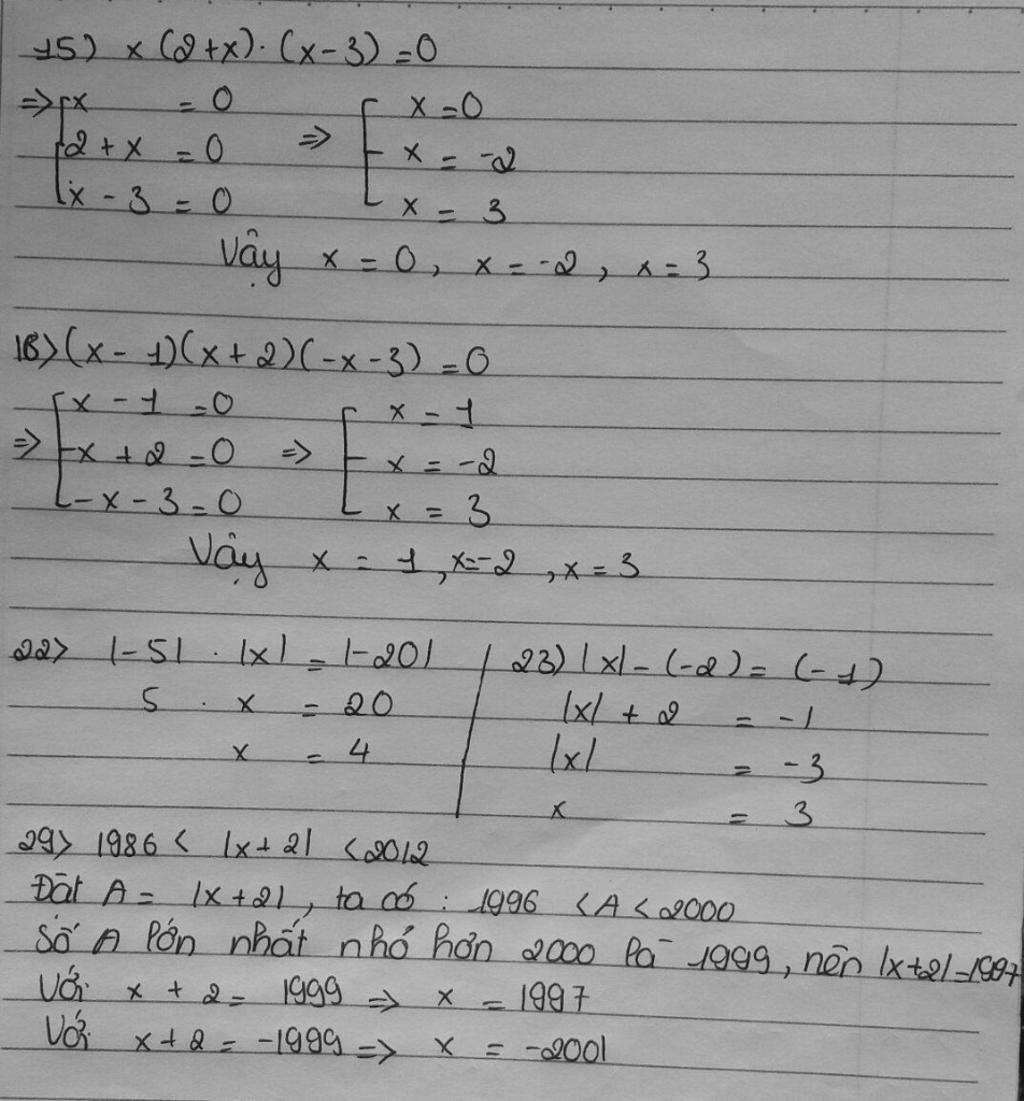 15) x(2+x).(x-3)=0
=> [x = 0 => [x=0
2+x = 0 x = -2
x-3 = 0 x = 3
Vậy x = 0, x = -2, x = 3
18>(x-1)(x+2)(-x-3)=0
[x-1=0 [x = 1
=> x+2=0 => x = -2
-x-3=0 x = 3
Vậy x = 1, x=-2, x = 3
22> |-5|.|x| = |-20|
5 . x = 20
x = 4
23) |x|-(-2) = (-1)
|x| + 2 = -1
|x| = -3
x = 3
29> 1986 < |x+2| < 2012
Đặt A = |x+2|, ta có : 1996 < A < 2000
Số A lớn nhất nhỏ hơn 2000 là 1999, nên |x+2|=1997
Với x + 2 = 1999 => x = 1997
Với x+2 = -1999 => x = -2001